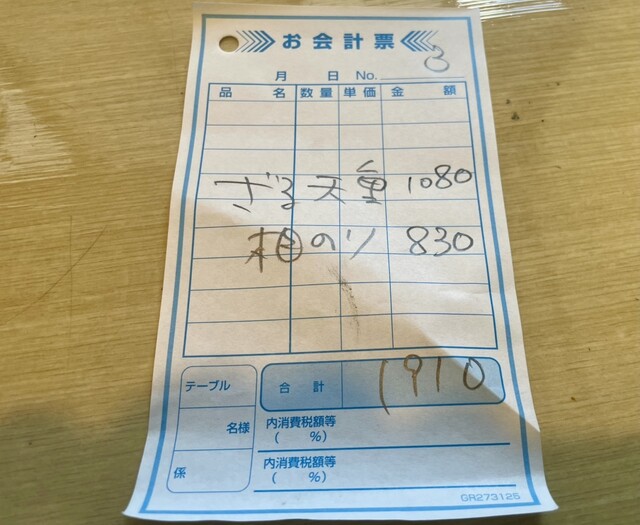 お会計票
月 日 No. 3
品名 数量 単価 金額
ざる天重 1080
相のり 830
合計 1910
テーブル
名様
係
内消費税額等
( %)
内消費税額等
( %)
GR273125